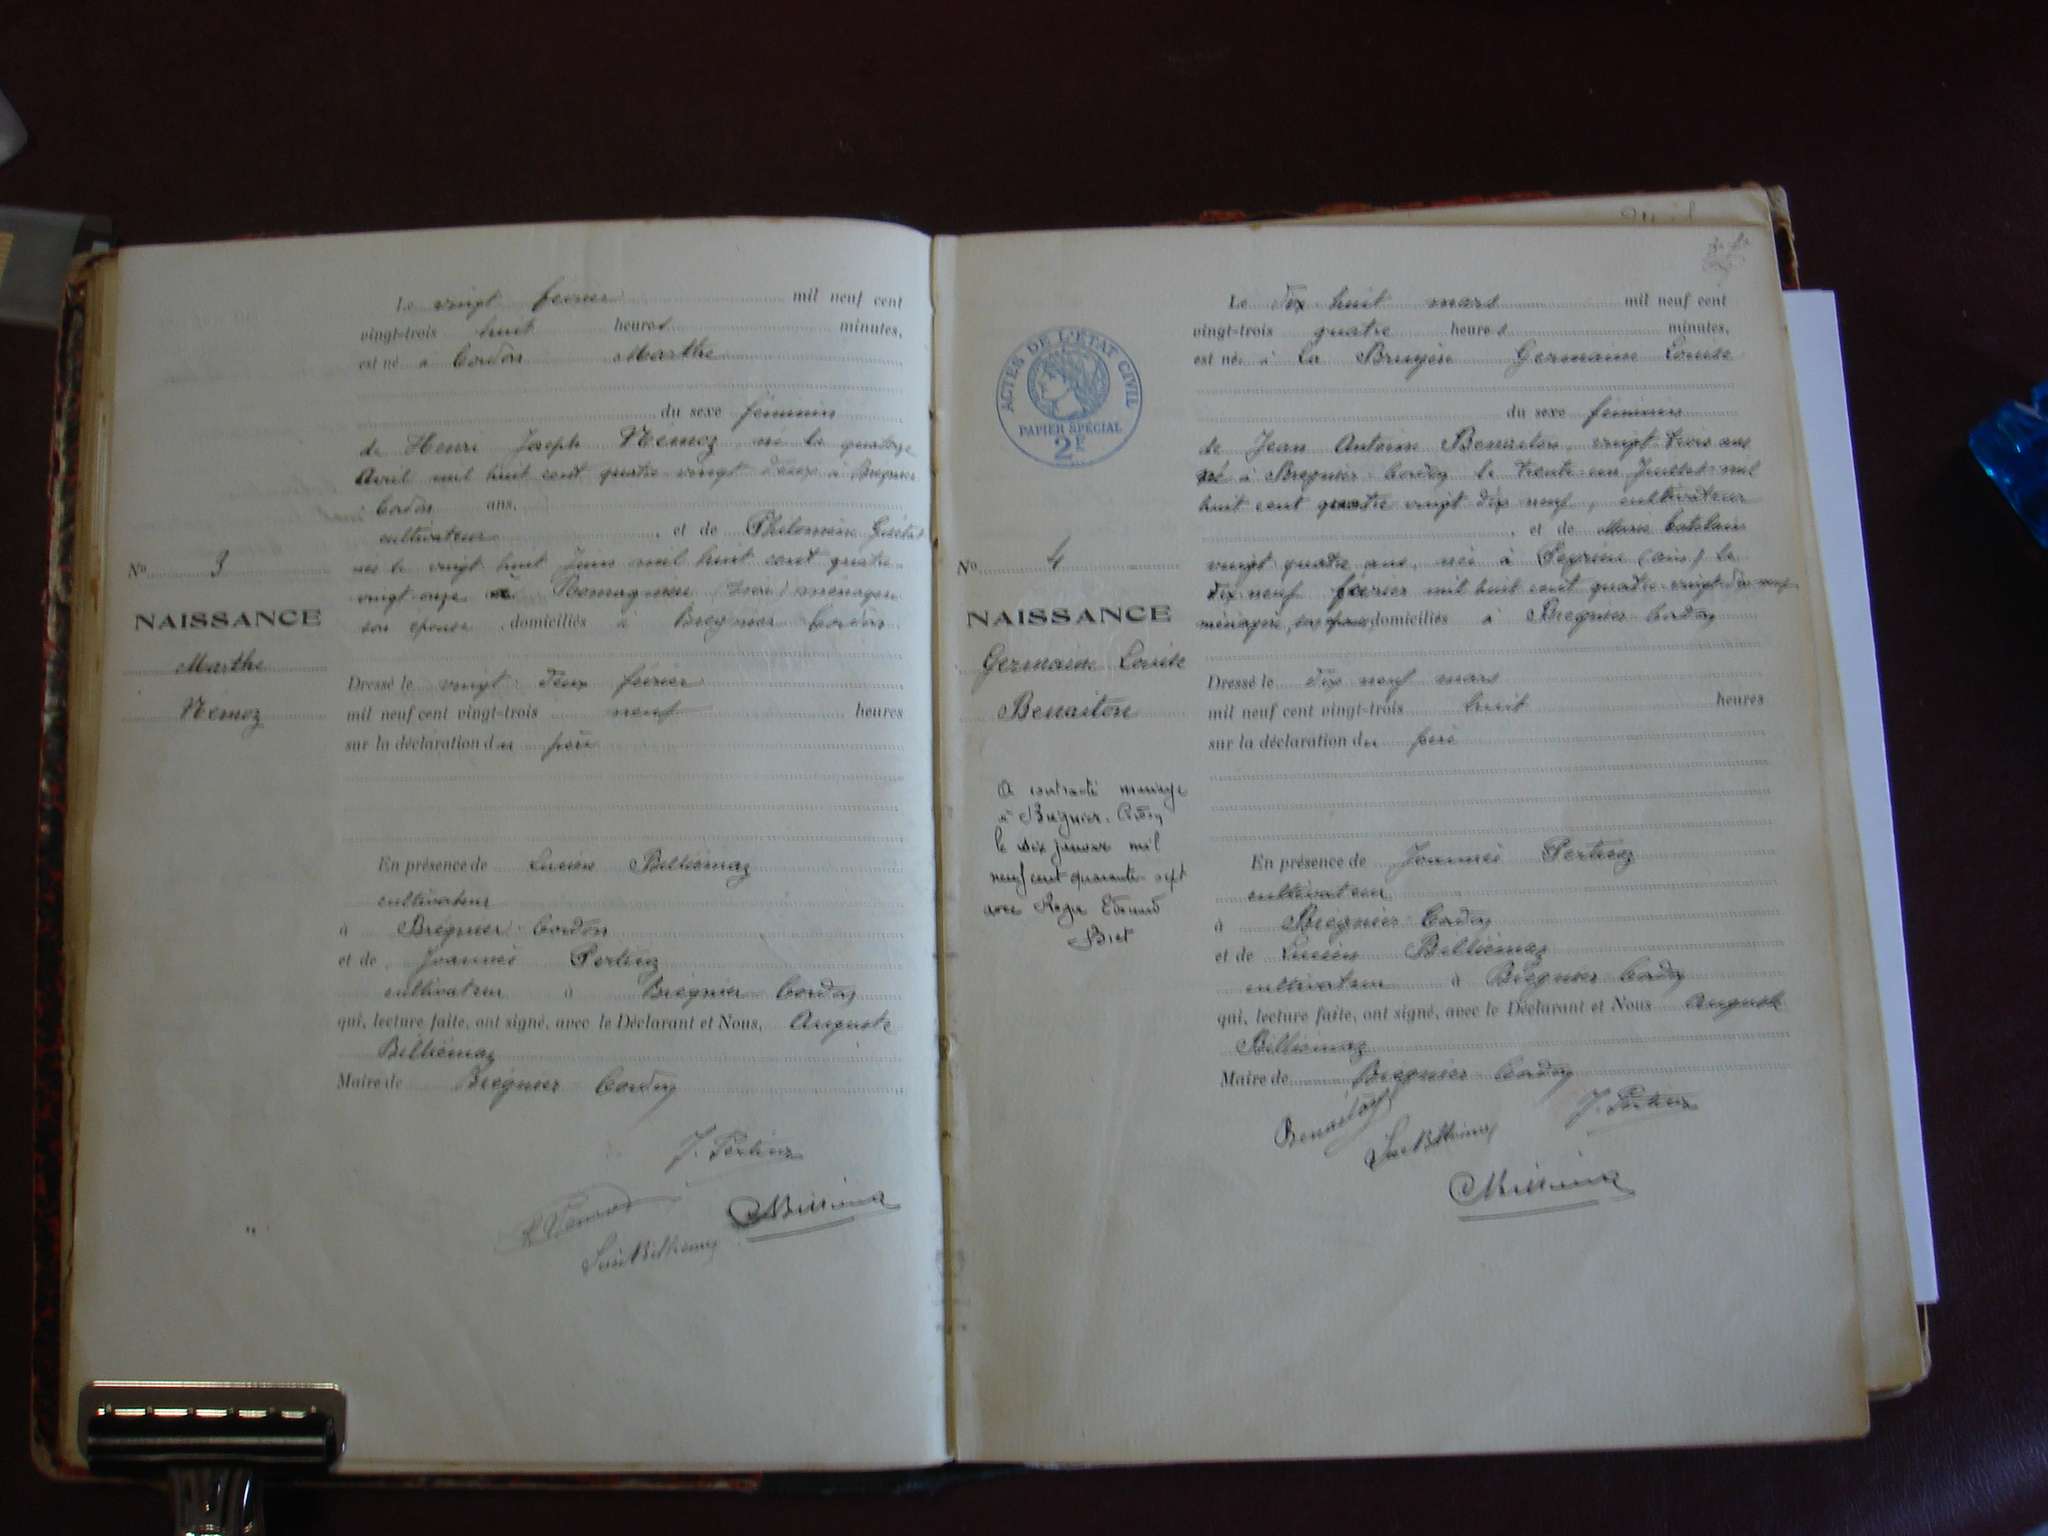 Le vingt février mil neuf cent
vingt-trois huit heures minutes,
est né à Cordon Marthe
du sexe féminin
de Henri Joseph Nemoz né le quatorze
Avril mil huit cent quatre vingt deux à Bregnier
Cordon ans,
cultivateur, et de Philomène
née le vingt huit Juin mil huit cent quatre
vingt onze à Romagnieu (Isère) ménagère
son épouse domiciliés à Bregnier Cordon
No 3
NAISSANCE
Marthe
Nemoz
Dressé le vingt deux février
mil neuf cent vingt-trois neuf heures
sur la déclaration du père
En présence de Lucien Billiemaz
cultivateur
à Brégnier Cordon
et de Joannès Pertinz
cultivateur à Brégnier Cordon
qui, lecture faite, ont signé, avec le Déclarant et Nous, Auguste
Billiemaz
Maire de Brégnier Cordon
J. Pertinz
ACTES DE L'ÉTAT CIVIL
PAPIER SPÉCIAL
2F
Le dix huit mars mil neuf cent
vingt-trois quatre heures minutes,
est née à La Bruyère Germaine Louise
du sexe féminin
de Jean Antoine Benaiton, vingt trois ans
né à Bregnier Cordon le trente un Juillet mil
huit cent quatre vingt dix neuf, cultivateur
, et de Marie Catelain
vingt quatre ans, née à Peyrieu (ain) le
dix neuf février mil huit cent quatre vingt dix neuf
ménagère, son épouse, domiciliés à Bregnier Cordon
No 4
NAISSANCE
Germaine Louise
Benaiton
Dressé le dix neuf mars
mil neuf cent vingt-trois huit heures
sur la déclaration du père
A contracté mariage
à Brégnier-Cordon
le six janvier mil
neuf cent quarante sept
avec Roger Edouard
Biet
En présence de Joannès Pertinz
cultivateur
à Brégnier Cordon
et de Lucien Billiemaz
cultivateur à Brégnier Cordon
qui, lecture faite, ont signé, avec le Déclarant et Nous Auguste
Billiemaz
Maire de Brégnier Cordon
Benaiton
J. Pertinz